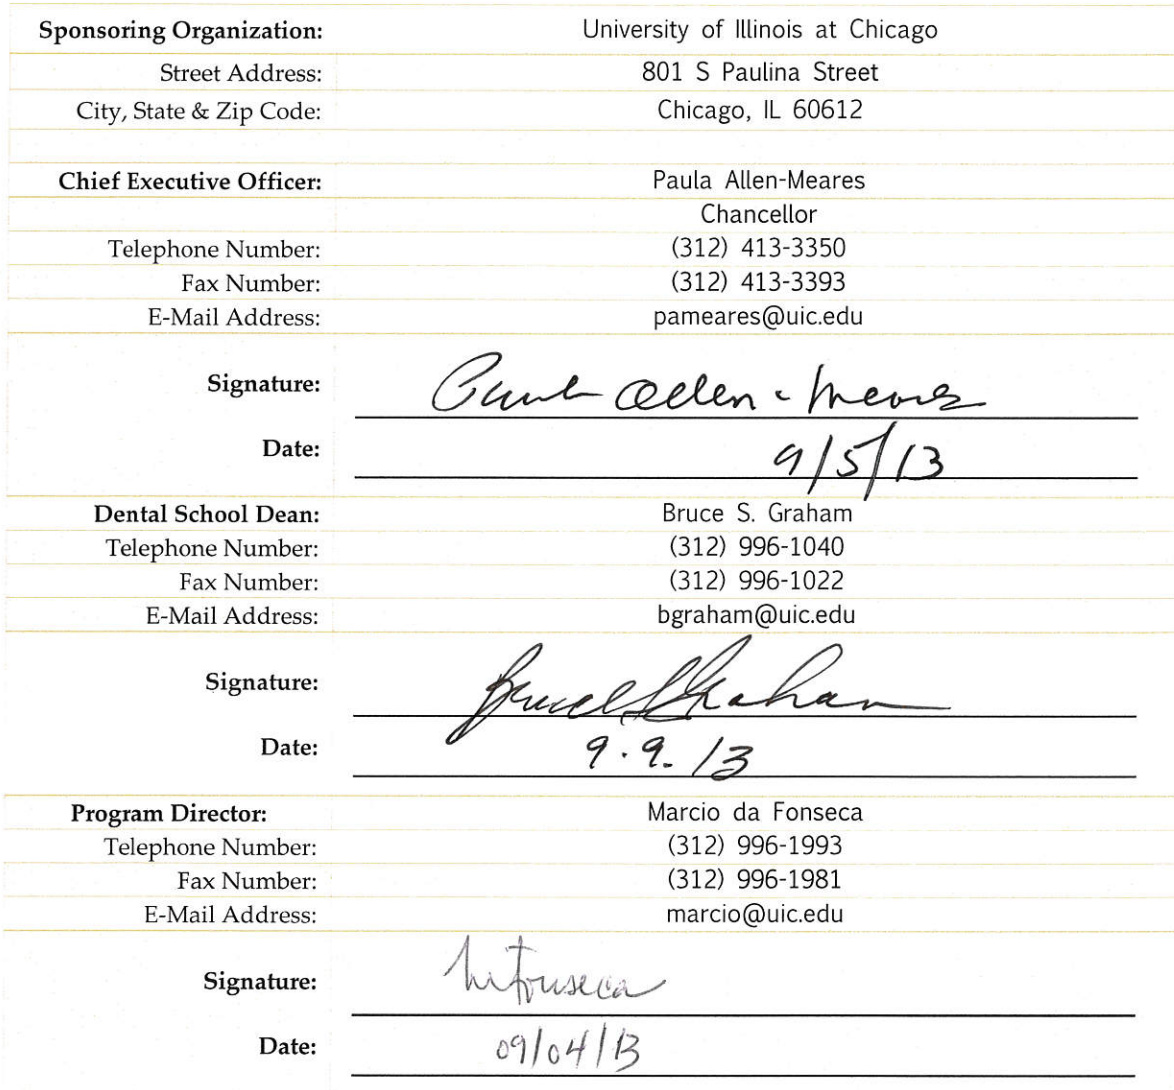 Sponsoring Organization: University of Illinois at Chicago
Street Address: 801 S Paulina Street
City, State & Zip Code: Chicago, IL 60612
Chief Executive Officer: Paula Allen-Meares
Chancellor
Telephone Number: (312) 413-3350
Fax Number: (312) 413-3393
E-Mail Address: pameares@uic.edu
Signature: Paula Allen-Meares
Date: 9/5/13
Dental School Dean: Bruce S. Graham
Telephone Number: (312) 996-1040
Fax Number: (312) 996-1022
E-Mail Address: bgraham@uic.edu
Signature: Bruce S Graham
Date: 9.9.13
Program Director: Marcio da Fonseca
Telephone Number: (312) 996-1993
Fax Number: (312) 996-1981
E-Mail Address: marcio@uic.edu
Signature: M Fonseca
Date: 09/04/13